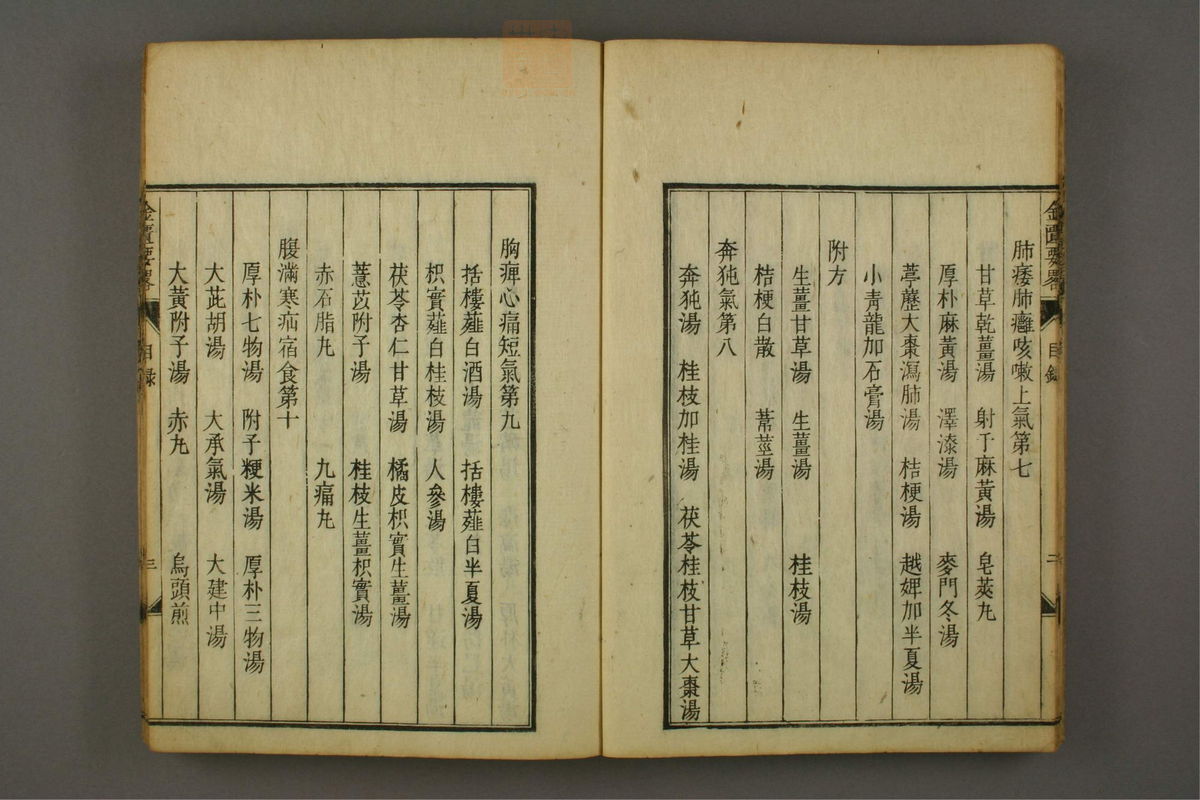 金匱要略 目録 二
肺痿肺癰咳嗽上氣第七
甘草乾薑湯 射干麻黃湯 皂莢丸
厚朴麻黃湯 澤漆湯 麥門冬湯
葶藶大棗瀉肺湯 桔梗湯 越婢加半夏湯
小青龍加石膏湯
附方
生薑甘草湯 生薑湯 桂枝湯
桔梗白散 葦莖湯
奔㹠氣第八
奔㹠湯 桂枝加桂湯 茯苓桂枝甘草大棗湯
胸痺心痛短氣第九
括樓薤白酒湯 括樓薤白半夏湯
枳實薤白桂枝湯 人參湯
茯苓杏仁甘草湯 橘皮枳實生薑湯
薏苡附子湯 桂枝生薑枳實湯
赤石脂丸 九痛丸
腹滿寒疝宿食第十
厚朴七物湯 附子粳米湯 厚朴三物湯
大茈胡湯 大承氣湯 大建中湯
大黃附子湯 赤丸 烏頭煎
金匱要略 目録 三